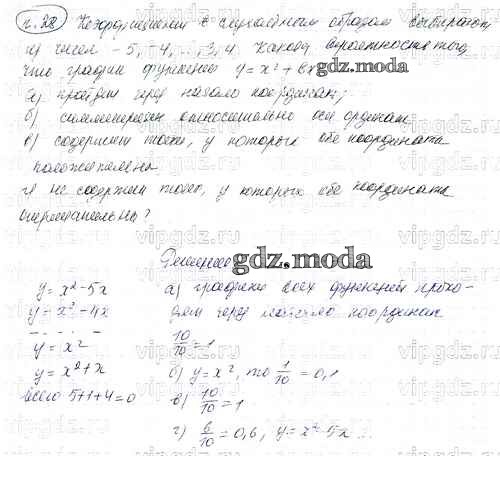 г. 38 Коэффициент в случайным образом выбирают
из чисел -5, -4, ... 3, 4. Какова вероятность того,
что график функции y = x² + bx
а) пройдет через начало координат;
б) симметричен относительно оси ординат
в) содержит точки, у которых обе координаты
положительны
г) не содержит точек, у которых обе координаты
отрицательны?
gdz.moda
Решение
y = x² - 5x
y = x² - 4x
y = x²
y = x² + x
всего 5+1+4=0
а) графики всех функций прохо-
дят через начало координат
10/10 = 1
б) y = x², то 1/10 = 0,1
в) 10/10 = 1
г) 6/10 = 0,6, y = x² 5x ...
vipgdz.ru
gdz.moda